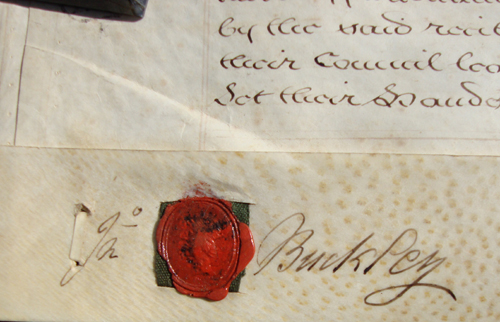 by the said recit
their Council
Set their Hands
Jaº Buckley